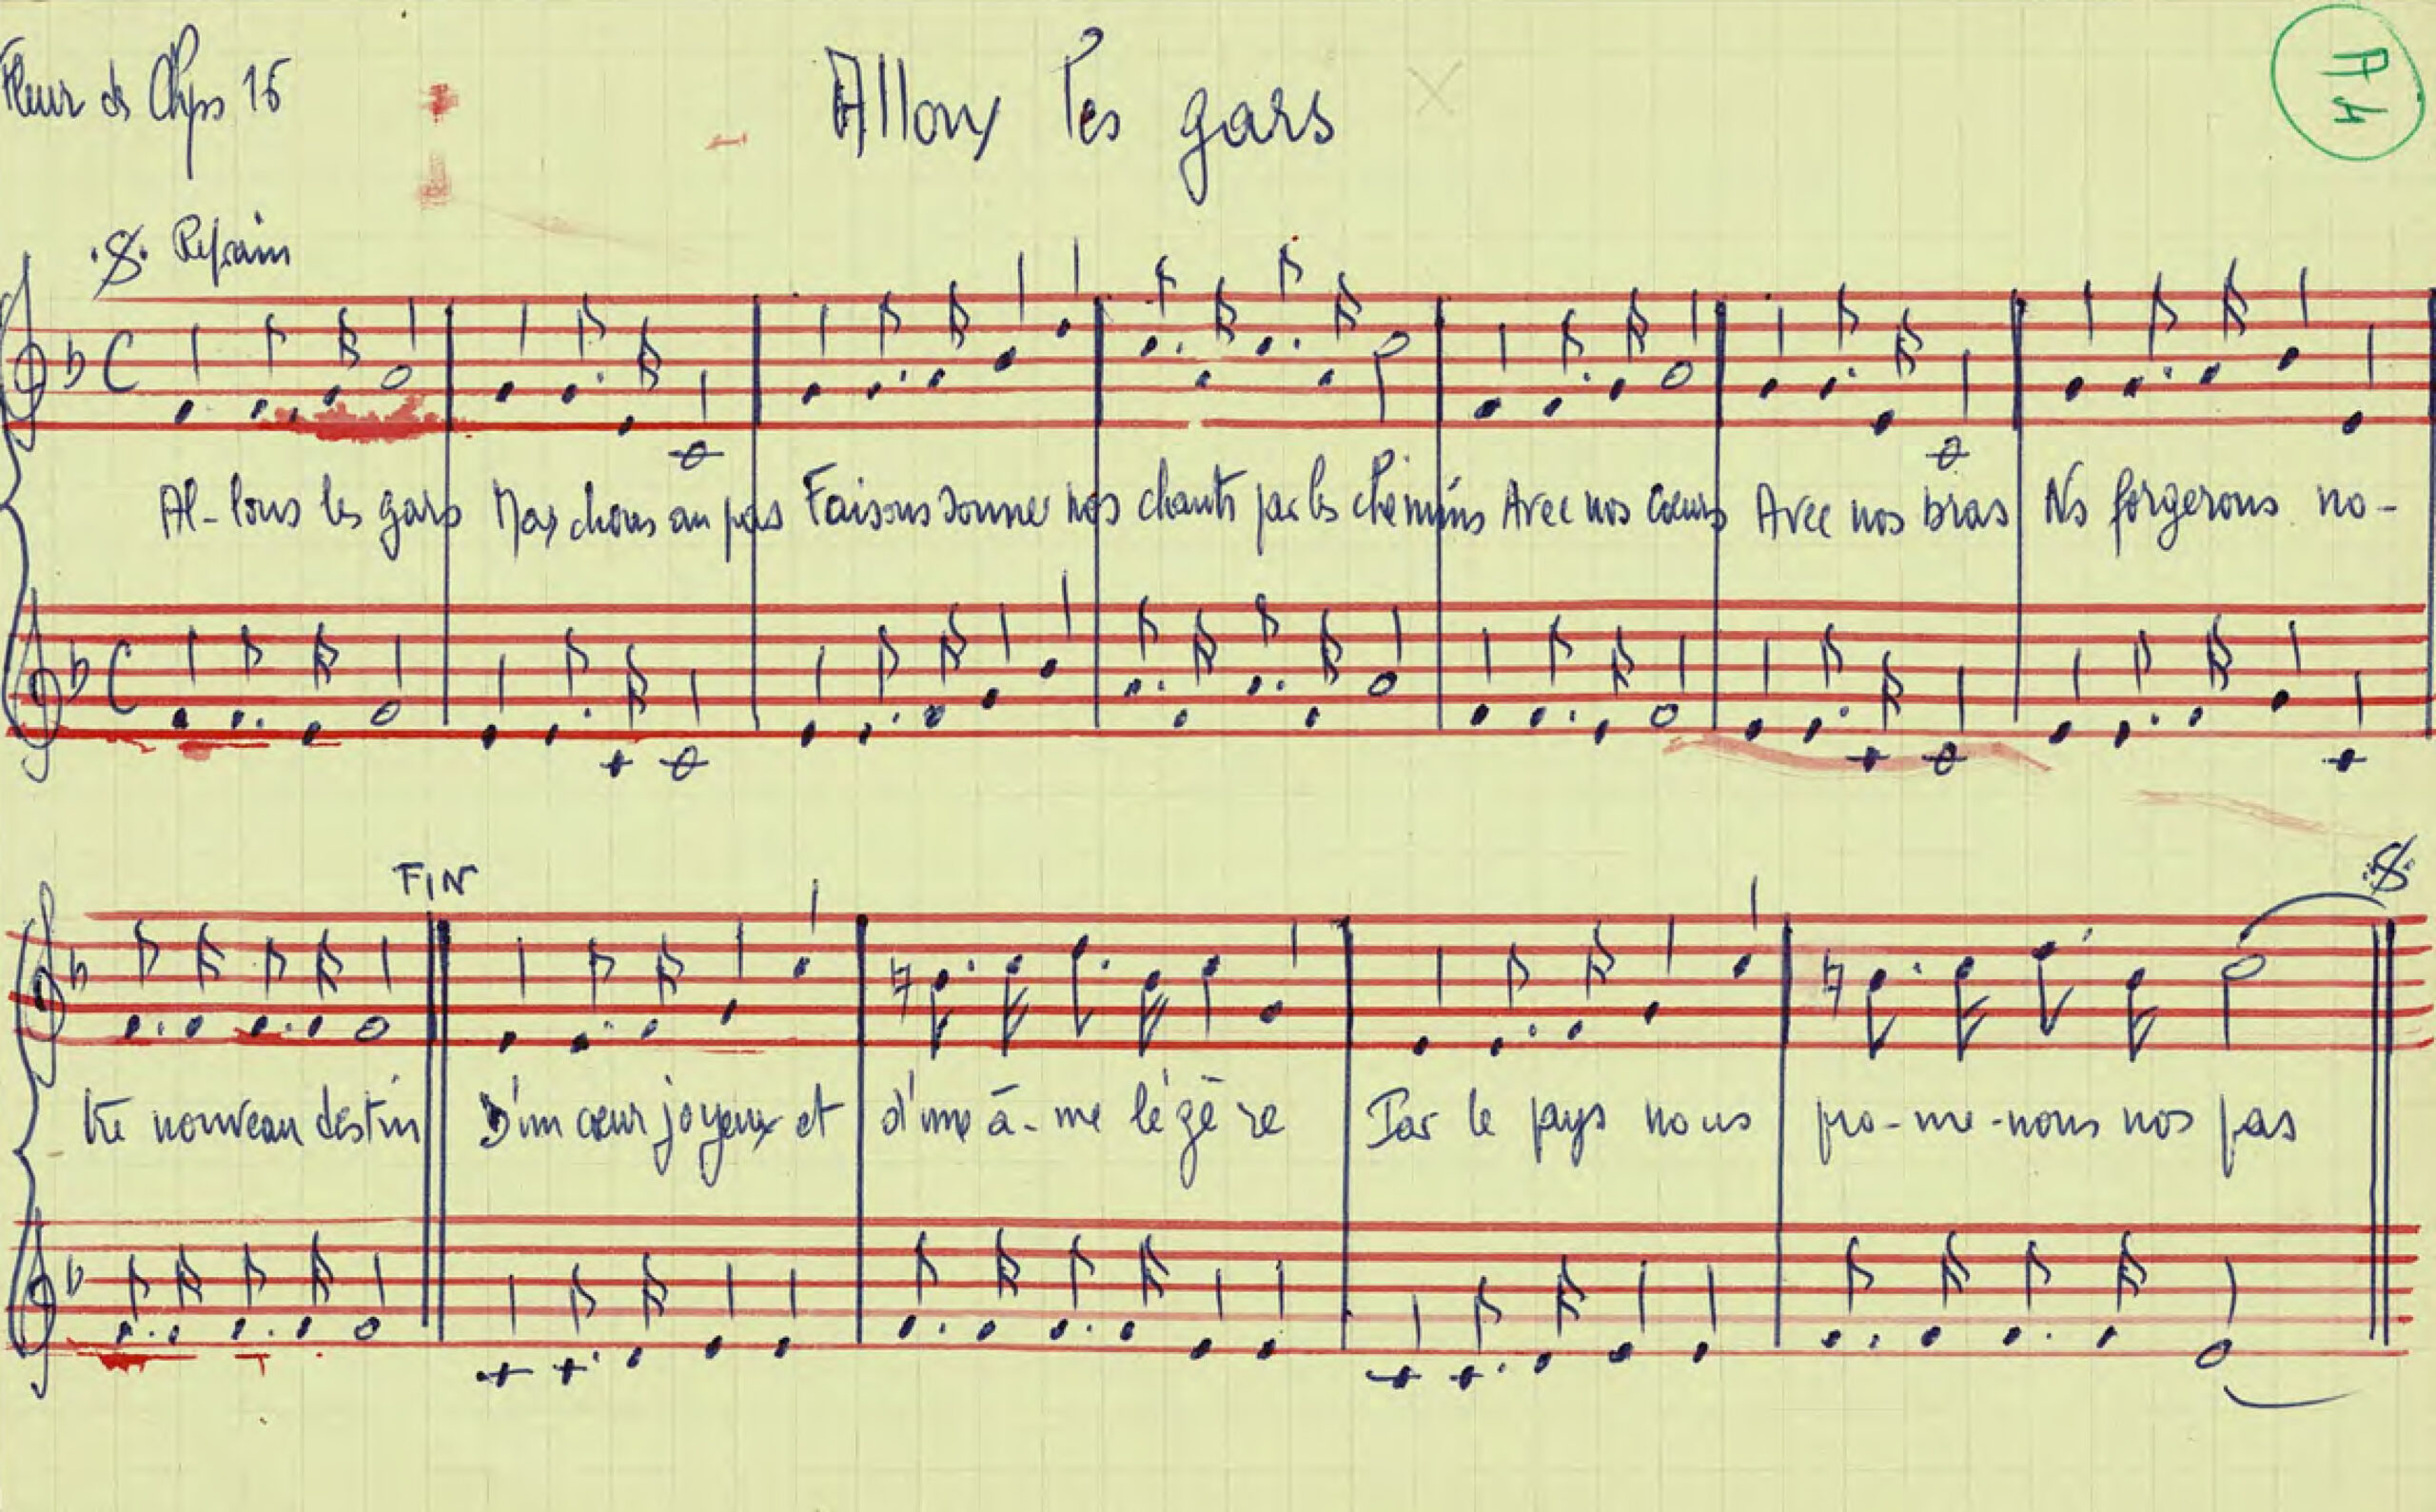 Fleur de Chps 15
Allons les gars
A4
Refrain
C
Al-lons les gars Marchons au pas Faisons sonner nos chants par les chemins Avec nos cœurs Avec nos bras Ns forgerons no-
C
FIN
tre nouveau destin D'un cœur joyeux et d'une â-me légère Par le pays nous pro-me-nons nos pas